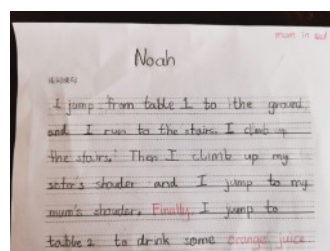 mum in red
Noah
I jump from table 1 to the ground
and I run to the stairs. I climb up
the stairs. Then I climb up my
sister's shouder and I jump to my
mum's shouder. Finally, I jump to
table 2 to drink some orange juice